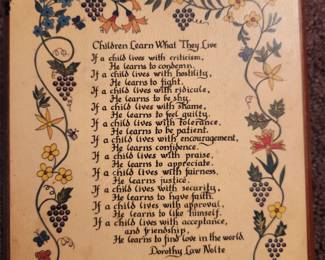 Children Learn What They Live
If a child lives with criticism,
He learns to condemn.
If a child lives with hostility,
He learns to fight.
If a child lives with ridicule,
He learns to be shy.
If a child lives with shame,
He learns to feel guilty.
If a child lives with tolerance,
He learns to be patient.
If a child lives with encouragement,
He learns confidence.
If a child lives with praise,
He learns to appreciate.
If a child lives with fairness,
He learns justice.
If a child lives with security,
He learns to have faith.
If a child lives with approval,
He learns to like himself.
If a child lives with acceptance,
and friendship,
He learns to find love in the world.
Dorothy Law Nolte